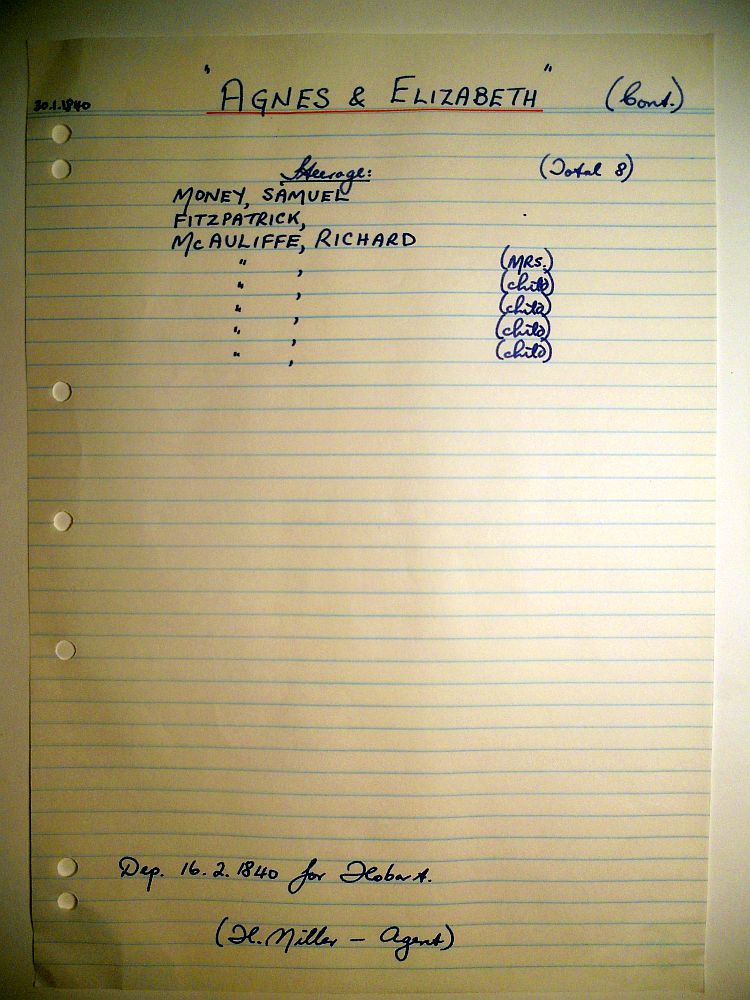 30.1.1840 "AGNES & ELIZABETH" (Cont.)
Steerage: (Total 8)
MONEY, SAMUEL
FITZPATRICK,
McAULIFFE, RICHARD
" , (MRS.)
" , (child)
" , (child)
" , (child)
" , (child)
Dep. 16.2.1840 for Hobart.
(H. Miller – Agent)